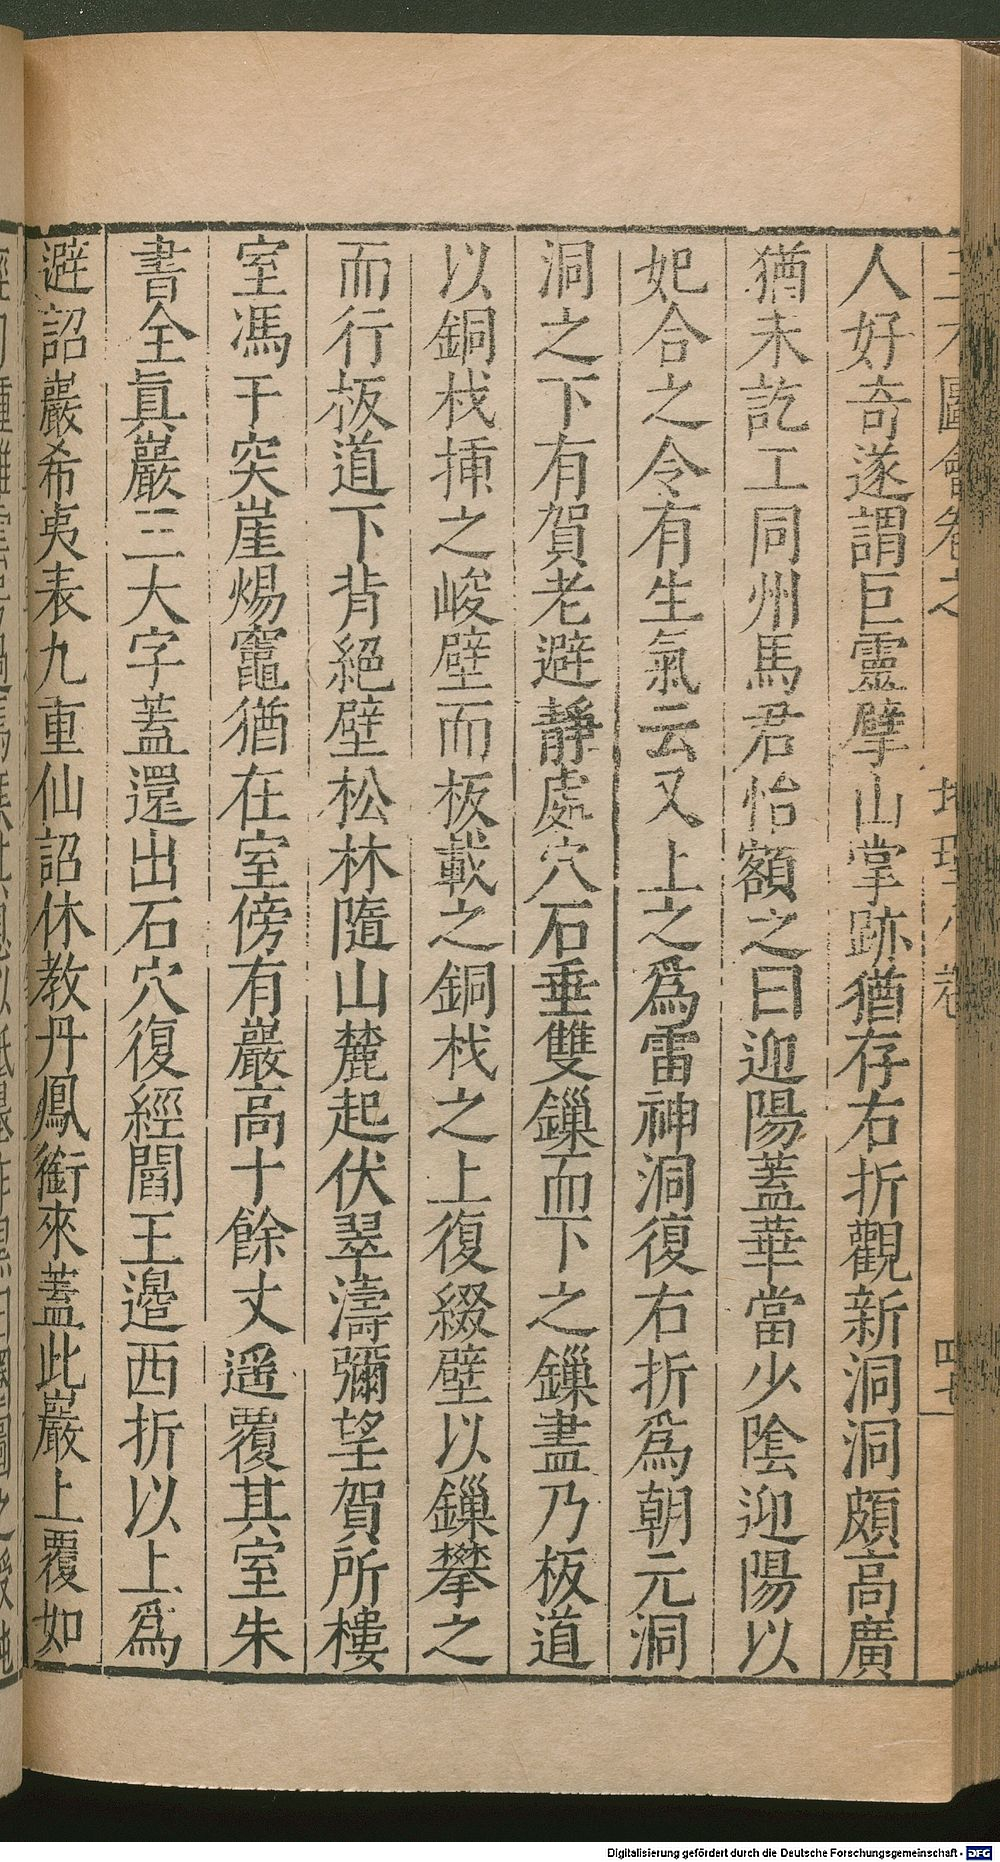 人好奇遂謂巨靈擘山掌跡猶存右折觀新洞洞頗高廣
猶未訖工同州馬君怡額之曰迎陽蓋華當少陰迎陽以
妃合之令有生氣云又上之爲雷神洞復右折爲朝元洞
洞之下有賀老避靜處穴石垂雙鏁而下之鏁盡乃板道
以銅栈揷之峻壁而板載之銅栈之上復綴壁以鏁攀之
而行板道下背絕壁松林隨山麓起伏翠濤彌望賀所棲
室馮于突崖煬竈猶在室傍有巖高十餘丈遥覆其室朱
書全眞巖三大字蓋還出石穴復經閻王邉西折以上爲
避詔巖希夷表九重仙詔休教丹鳳銜來蓋此巖上覆如
圖會卷之 地理八卷 四七
Digitalisierung gefördert durch die Deutsche Forschungsgemeinschaft - DFG